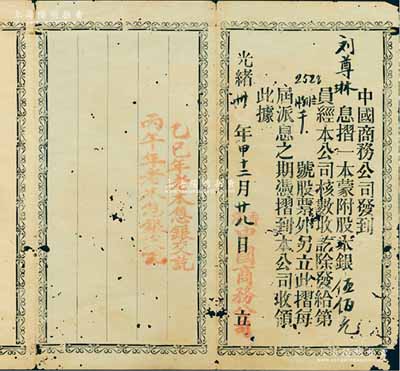 中國商務公司發到
刘尊琳 息摺一本蒙附股本銀 伍佰元
員經本公司核數收訖除發給第
2528 號股票外另立此摺每
屆派息之期憑摺到本公司收領
此據
光緒 卅 年甲十二月廿八日 立
中國商務公司
乙巳年老本息銀交訖
丙午年老本息銀交訖